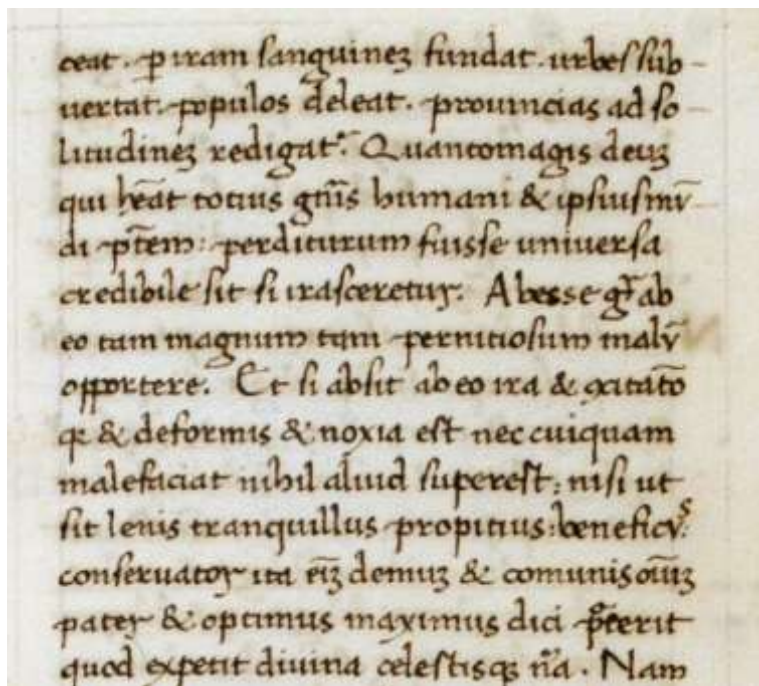 ceat. ꝑ iram sanguineꝫ fundat. urbes sub-
uertat. populos deleat. prouincias ad so-
litudineꝫ redigat². Quantomagis deuꝫ
qui hēat totius gn̄is humani & ipsius mū-
di ptēm: perditurum fuisse universa
credibile sit si irasceretur. Abesse gͥ ab
eo tam magnum tam pernitiosum malū
opportere. Et si absit ab eo ira & ꝯcitatō
qꝛ & deformis & noxia est nec cuiquam
malefaciat nihil aliud superest: nisi ut
sit lenis tranquillus propitius: beneficus:
conseruator ita eīꝫ demuꝫ & comunis oīuꝫ
pater & optimus maximus dici poterit
quod expetit divina celestisqꝫ nᷓa. Nam